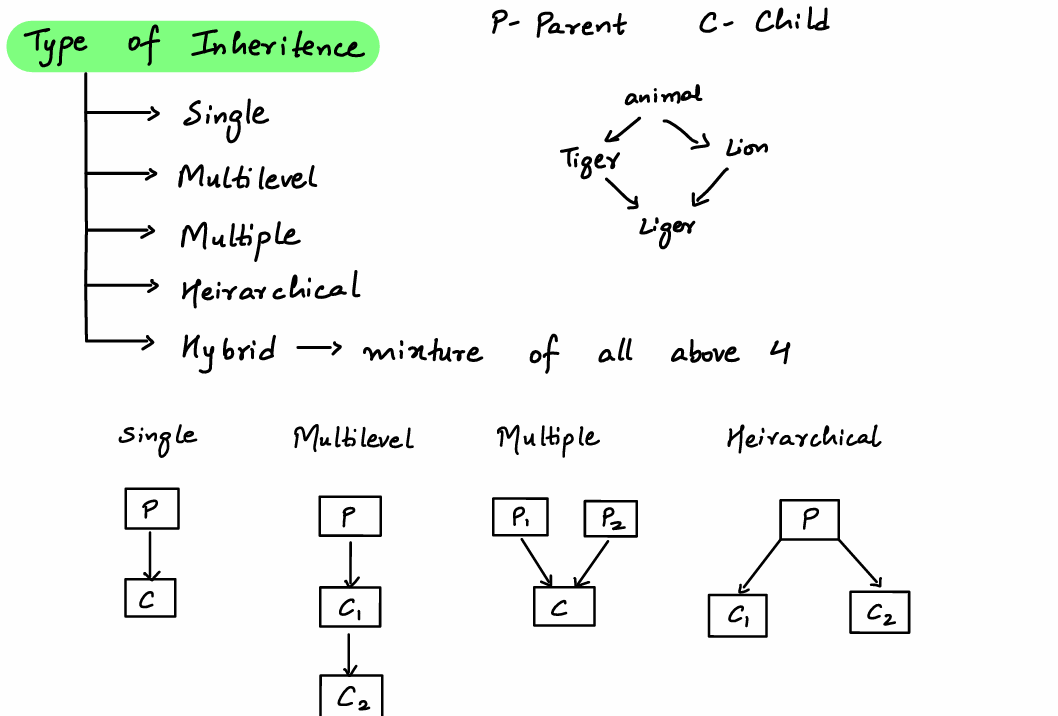 Type of Inheritence
P- Parent C- Child
Single
Multilevel
Multiple
Heirarchical
Hybrid → mixture of all above 4
animal
Tiger Lion
Liger
Single Multilevel Multiple Heirarchical
P P P₁ P₂ P
C C₁ C C₁ C₂
C₂